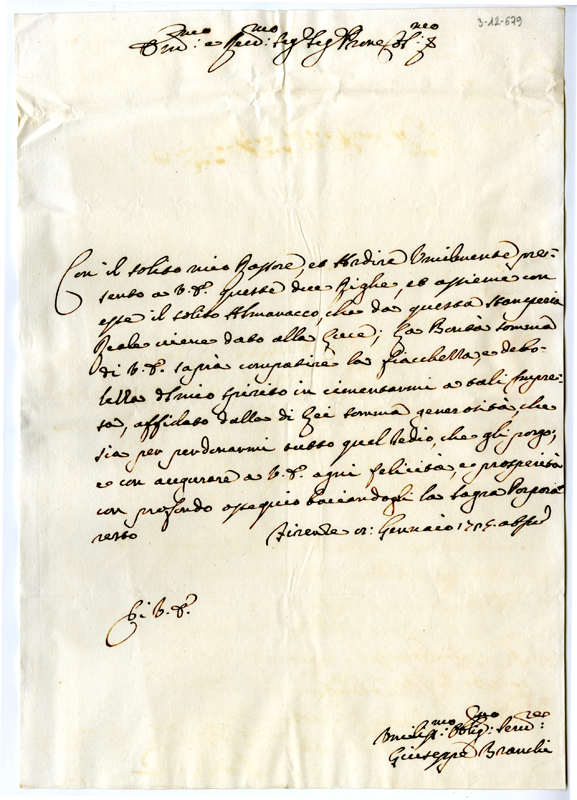 3-12-679
Em:mo e Rev:mo Sig Sig Prone
Con il solito mio Rossore, et Ardire Umilmente pre=
sento a V. E. queste due Righe, et assieme con
esse il solito Almanacco, che da questa Stamperia
Reale viene dato alla Luce; La Bontà somma
di V. E. saprà compatire la fiacchezza, e debo=
lezza del mio spirito in cimentarmi a tali Impre=
se, affidato dalla di Lei somma generosità, che
sia per perdonarmi tutto quel tedio, che gli porgo;
e con augurare a V. E. ogni felicità, e prosperità
con profondo ossequio baciandogli la Sagra Porpora
resto Firenze Gennaio
Di V. E.
Umiliss:mo Oblig:mo Serv:re
Giuseppe Branchi